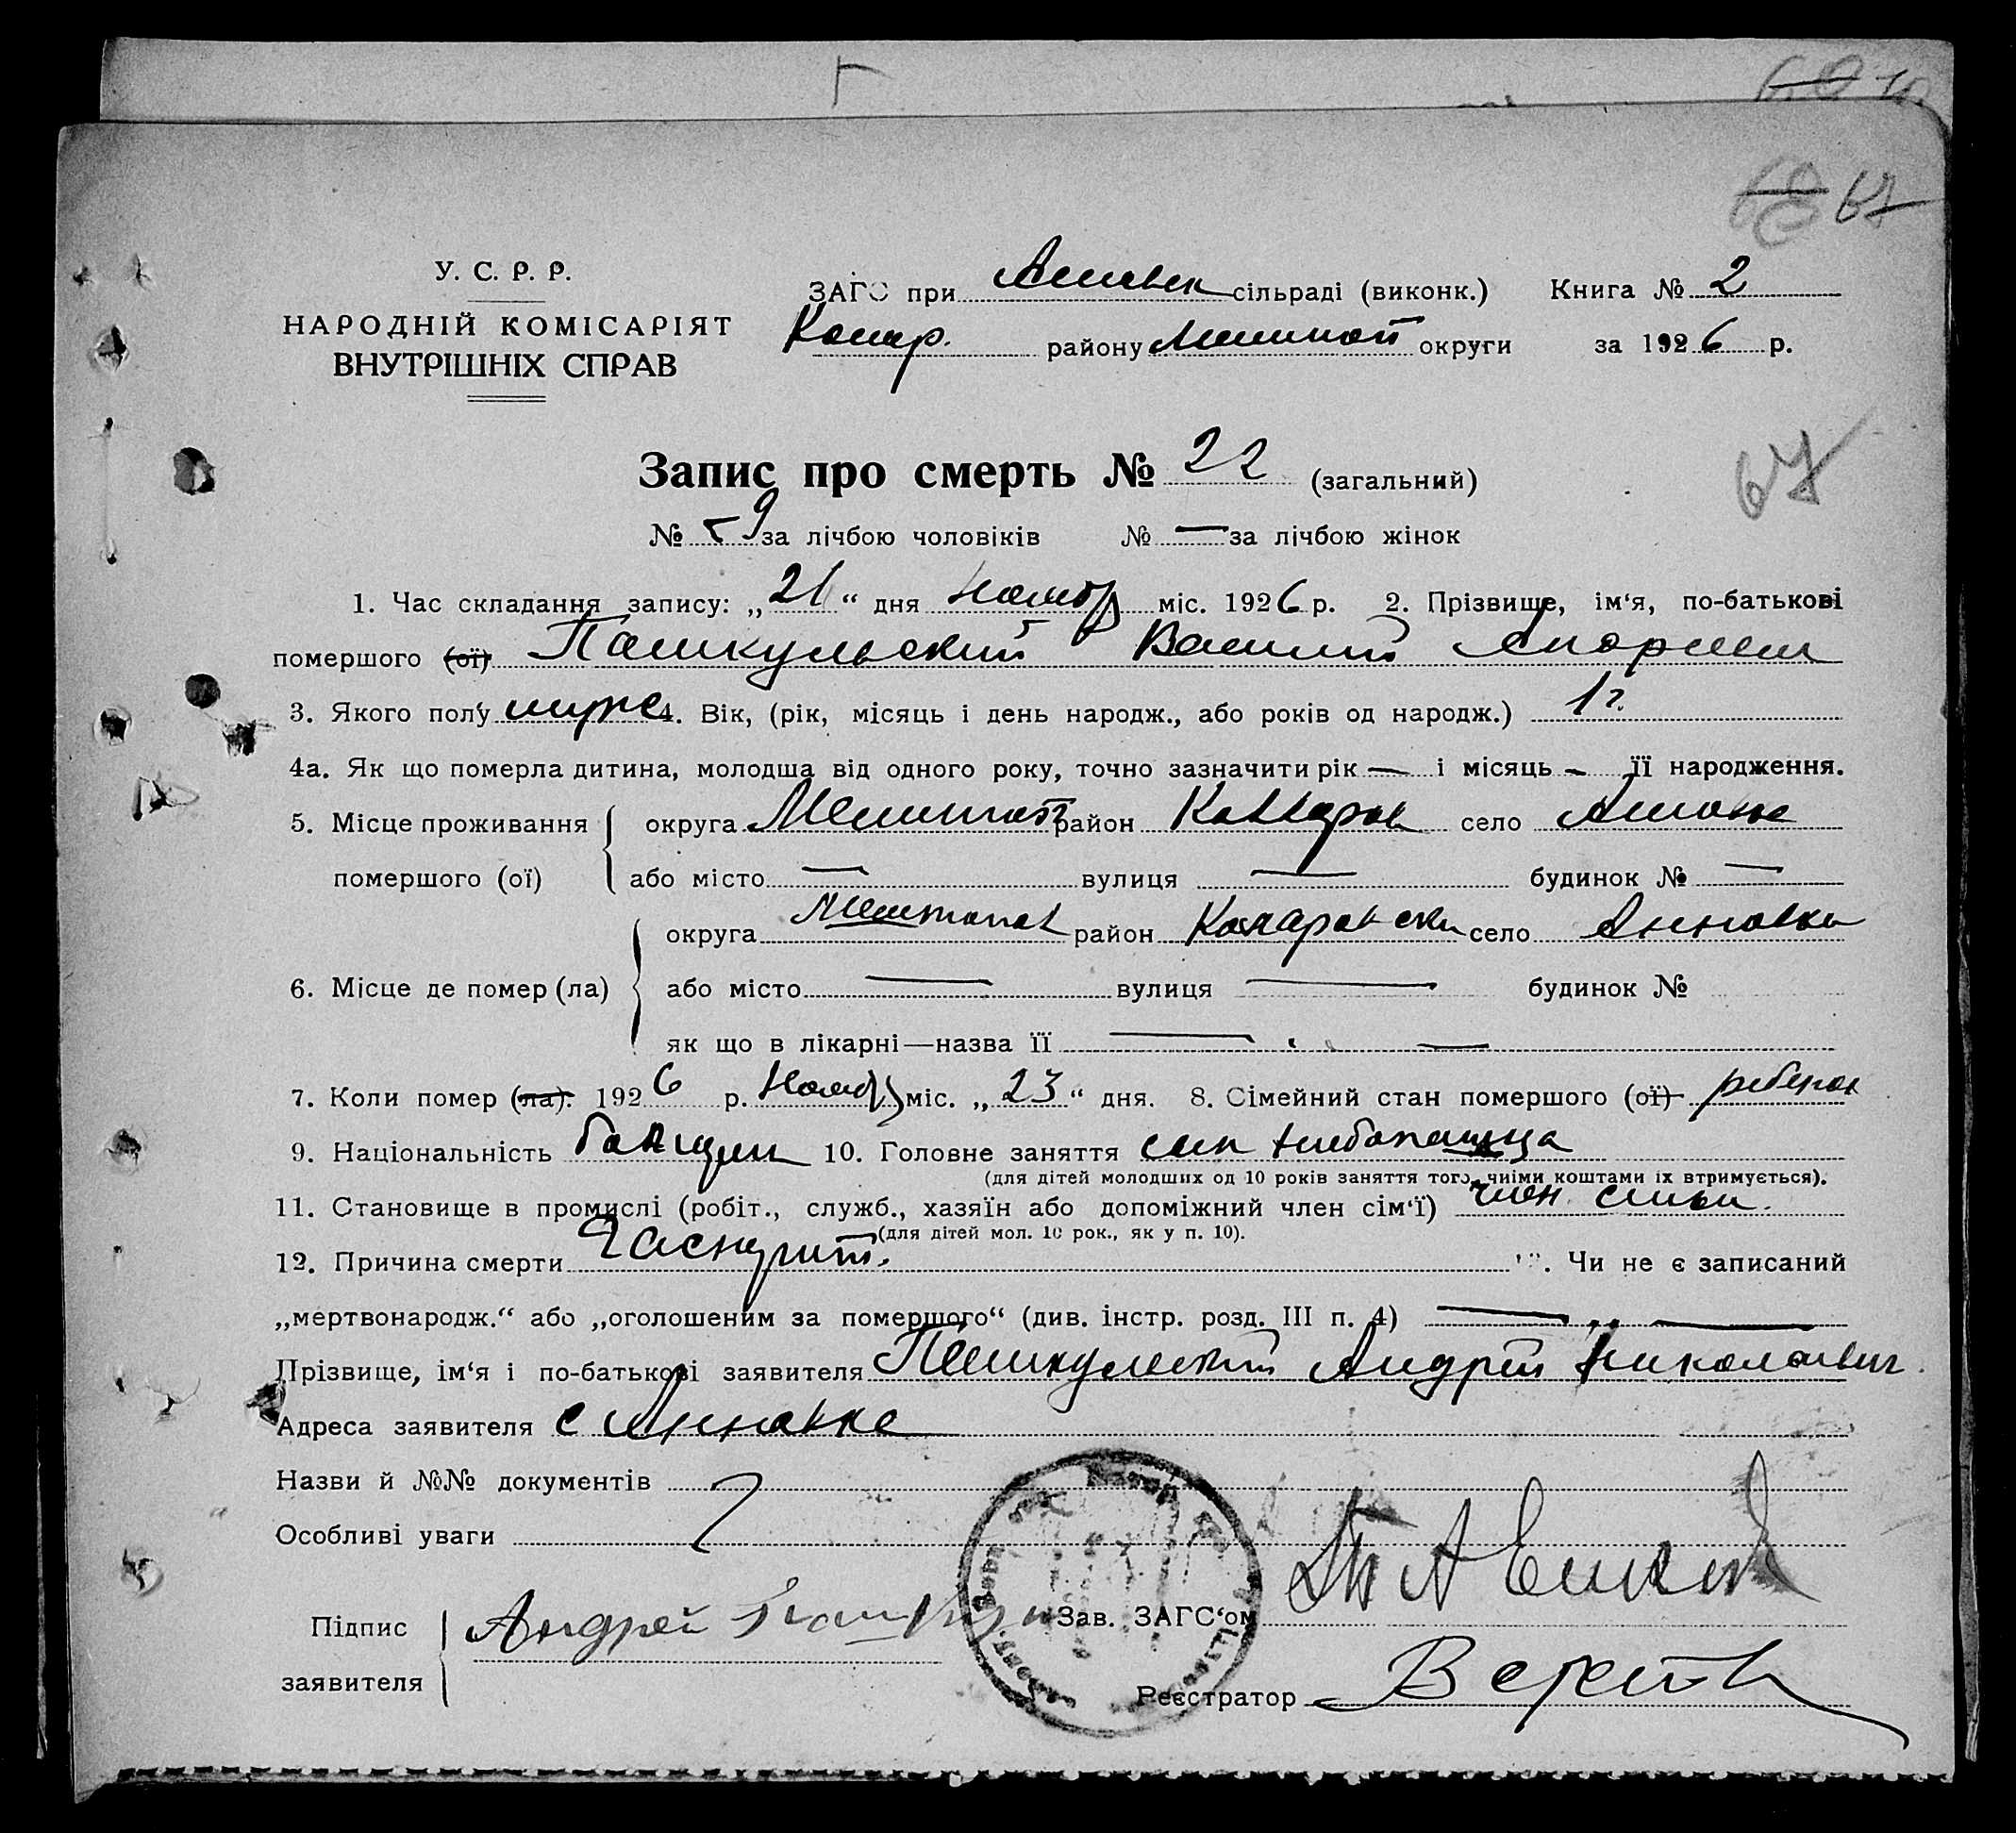 У. С. Р. Р.
НАРОДНІЙ КОМІСАРІЯТ
ВНУТРІШНІХ СПРАВ
ЗАГС при сільраді (виконк.) Книга № 2
Комар. району округи за 1926 р.
67
Запис про смерть № 22 (загальний)
67
№ 9 за лічбою чоловіків № — за лічбою жінок
1. Час складання запису: „21“ дня Ноября міс. 1926 р. 2. Прізвище, ім‘я, по-батькові
помершого (ої) Пашкульский Василий
3. Якого полу муже 4. Вік, (рік, місяць і день народж., або років од народж.) 1 г.
4а. Як що померла дитина, молодша від одного року, точно зазначити рік — і місяць - її народження.
5. Місце проживання округа район село
помершого (ої) або місто — вулиця — будинок № —
округа район Комаровски село Анновка
6. Місце де помер (ла) або місто — вулиця — будинок №
як що в лікарні—назва її — —
7. Коли помер (ла): 1926 р. Нояб міс. „23“ дня. 8. Сімейний стан помершого (ої) ребенок
9. Національність 10. Головне заняття сын хлебопашца
(для дітей молодших од 10 років заняття того, чиїми коштами їх втримується).
11. Становище в промислі (робіт., служб., хазяїн або допоміжний член сім‘ї) член семьи.
(для дітей мол. 10 рок., як у п. 10).
12. Причина смерти . Чи не є записаний
„мертвонародж.“ або „оголошеним за померщого“ (див. інстр. розд. III п. 4) — —
Прізвище, ім‘я і по-батькові заявителя Пашкульский Андрей Николаевич
Адреса заявителя с Анновке
Назви й №№ документів
Особливі уваги
Підпис Андрей Зав. ЗАГС‘ом
заявителя Реєстратор